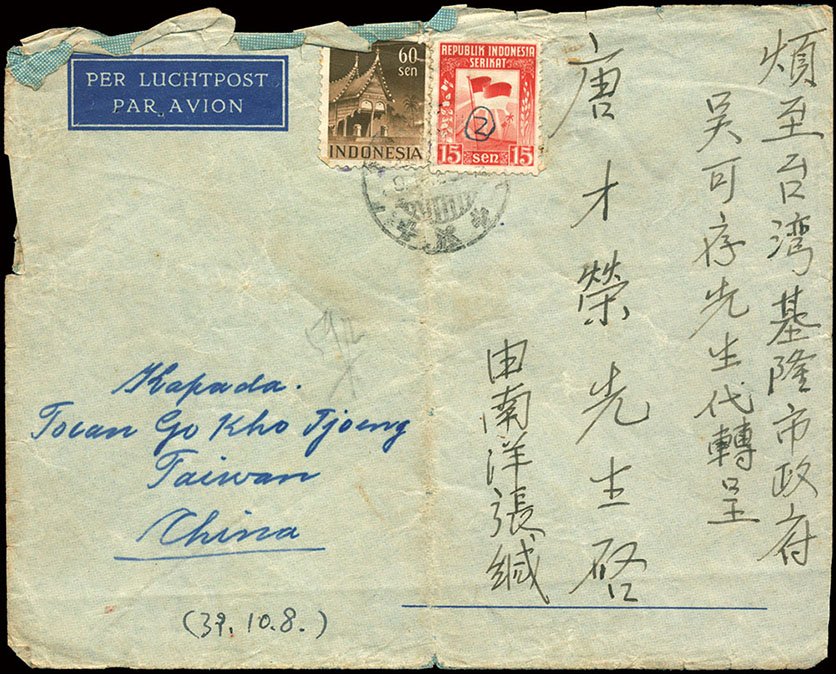 PER LUCHTPOST
PAR AVION
60
sen
INDONESIA
REPUBLIK INDONESIA
SERIKAT
②
15 sen 15
煩至台湾基隆市政府
吴可存先生代轉呈
唐才榮先生啓
由南洋張緘
Kapada.
Toean Go Kho Tjoeng
Taiwan
China
(39.10.8.)